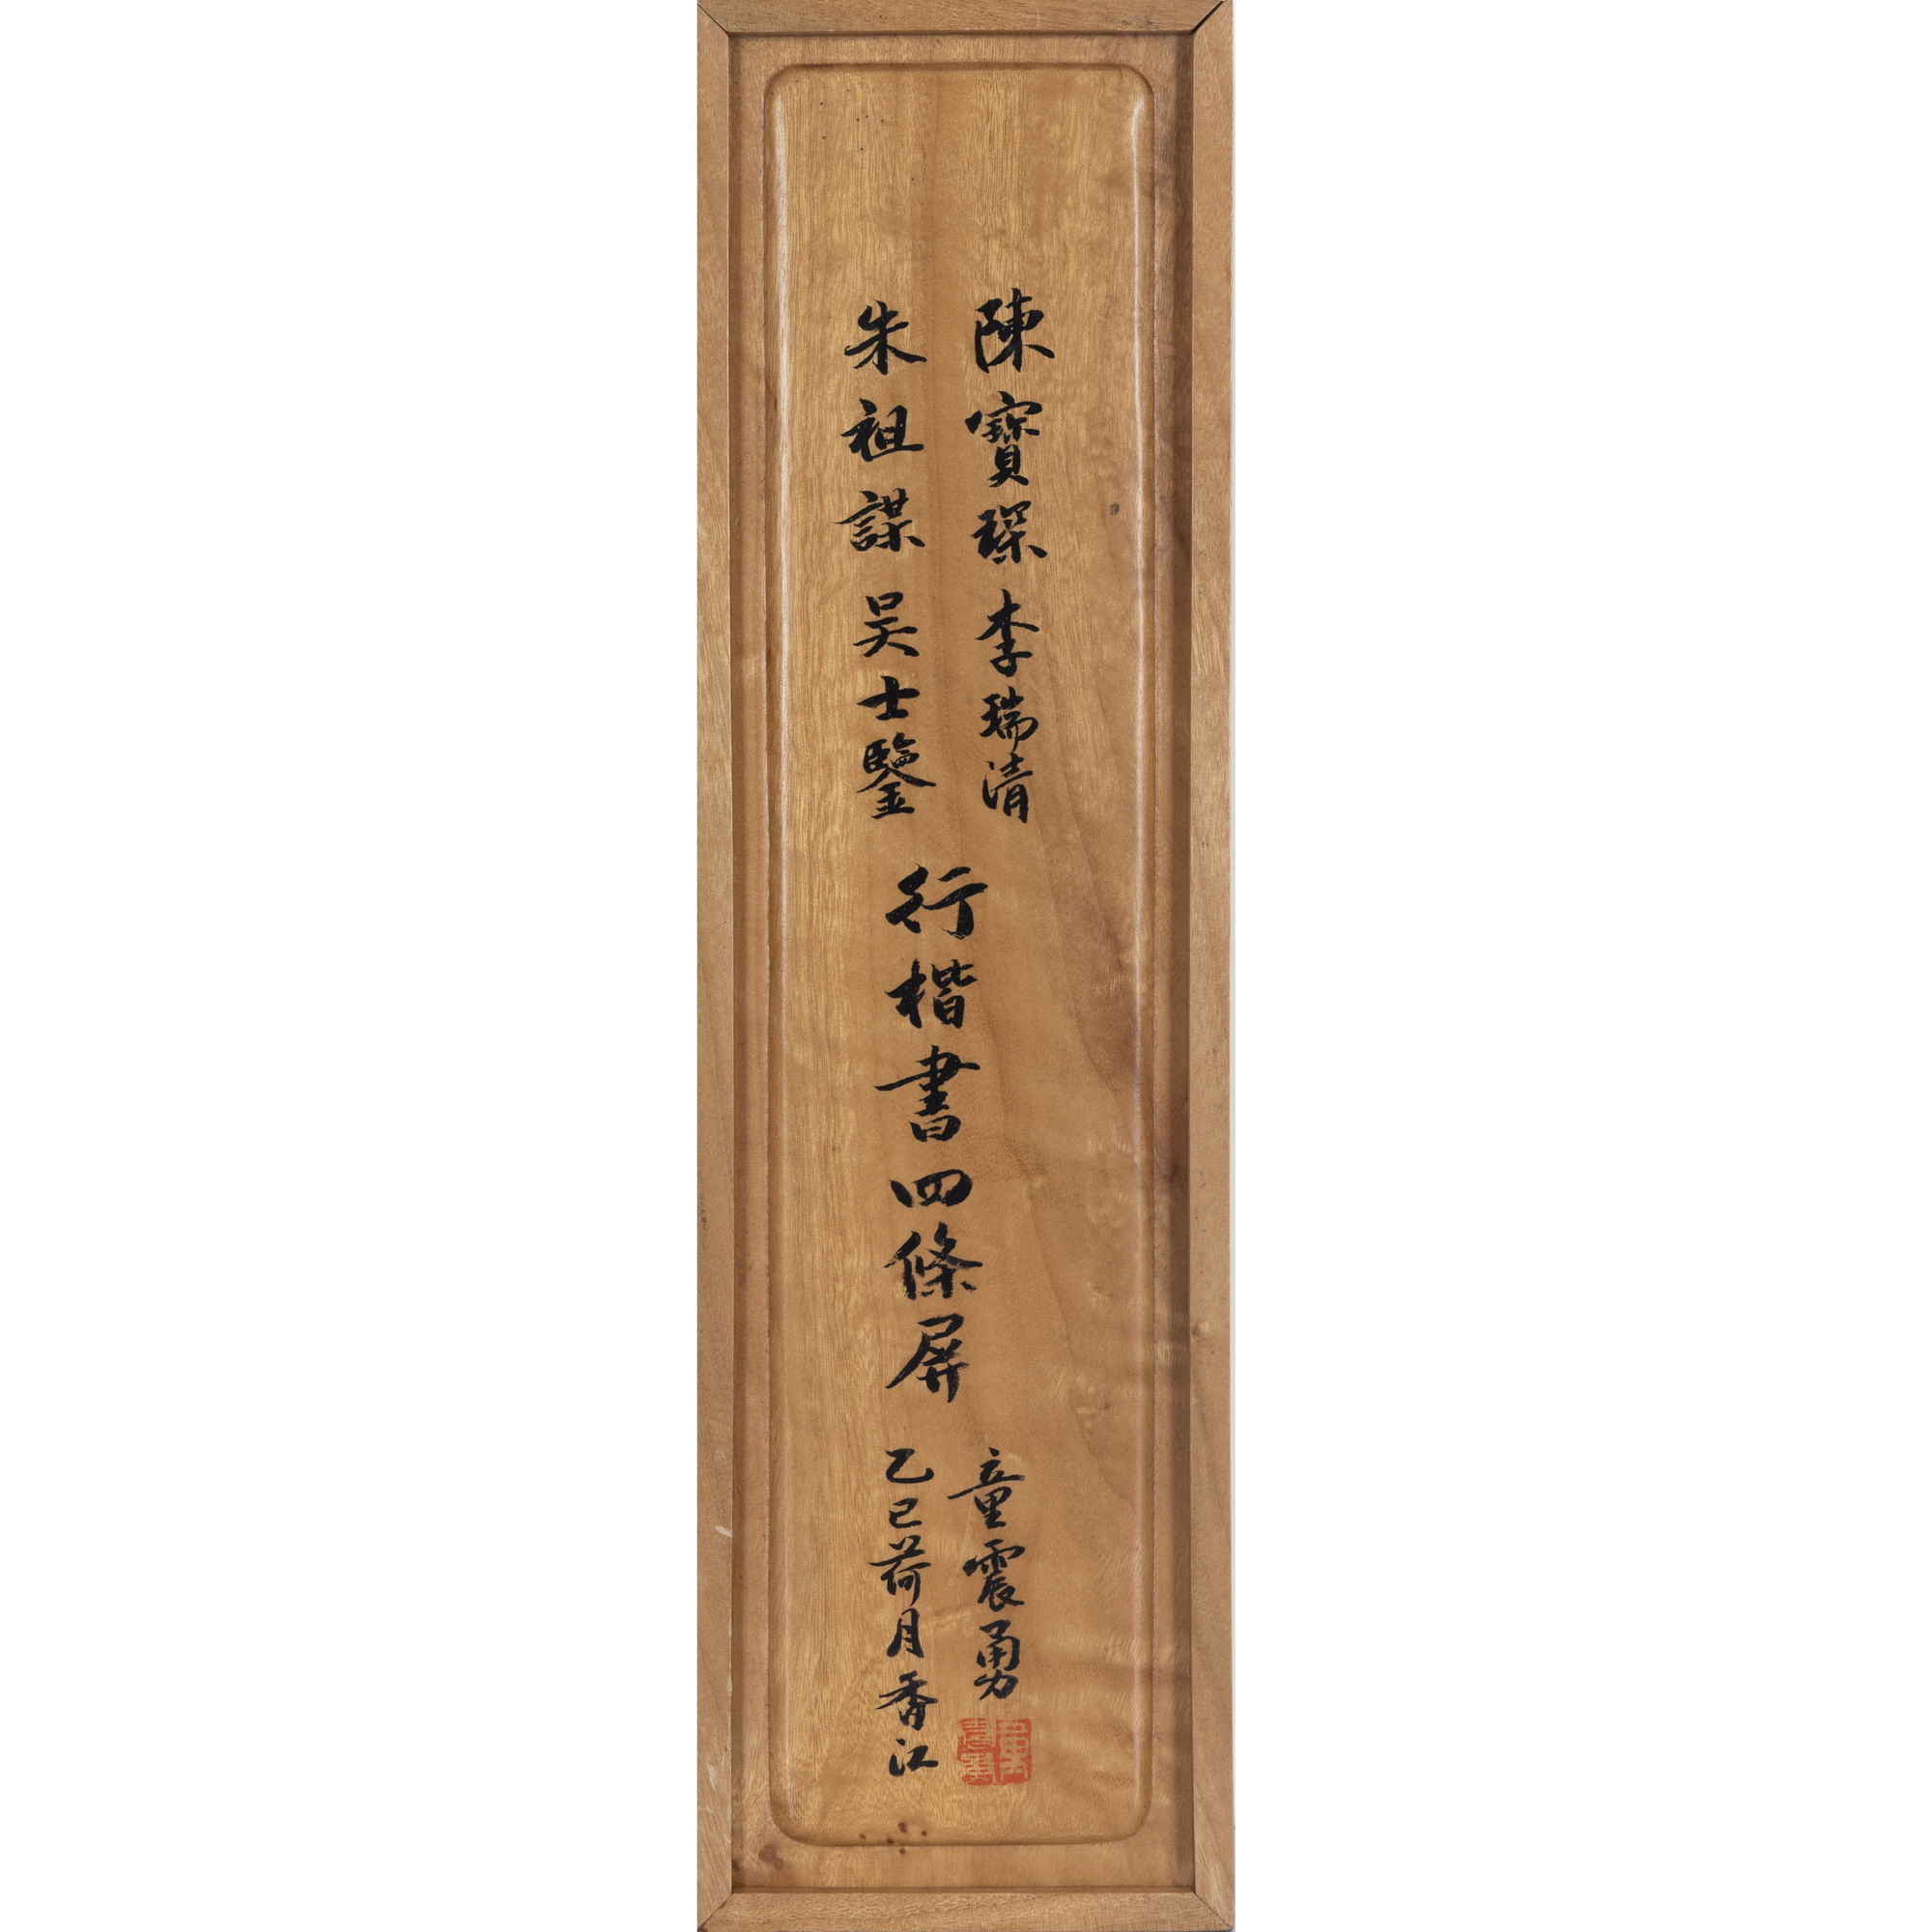 陳寶琛李瑞清
朱祖謀吴士鑒
行楷書四條屏
童震勇
乙巳荷月香江